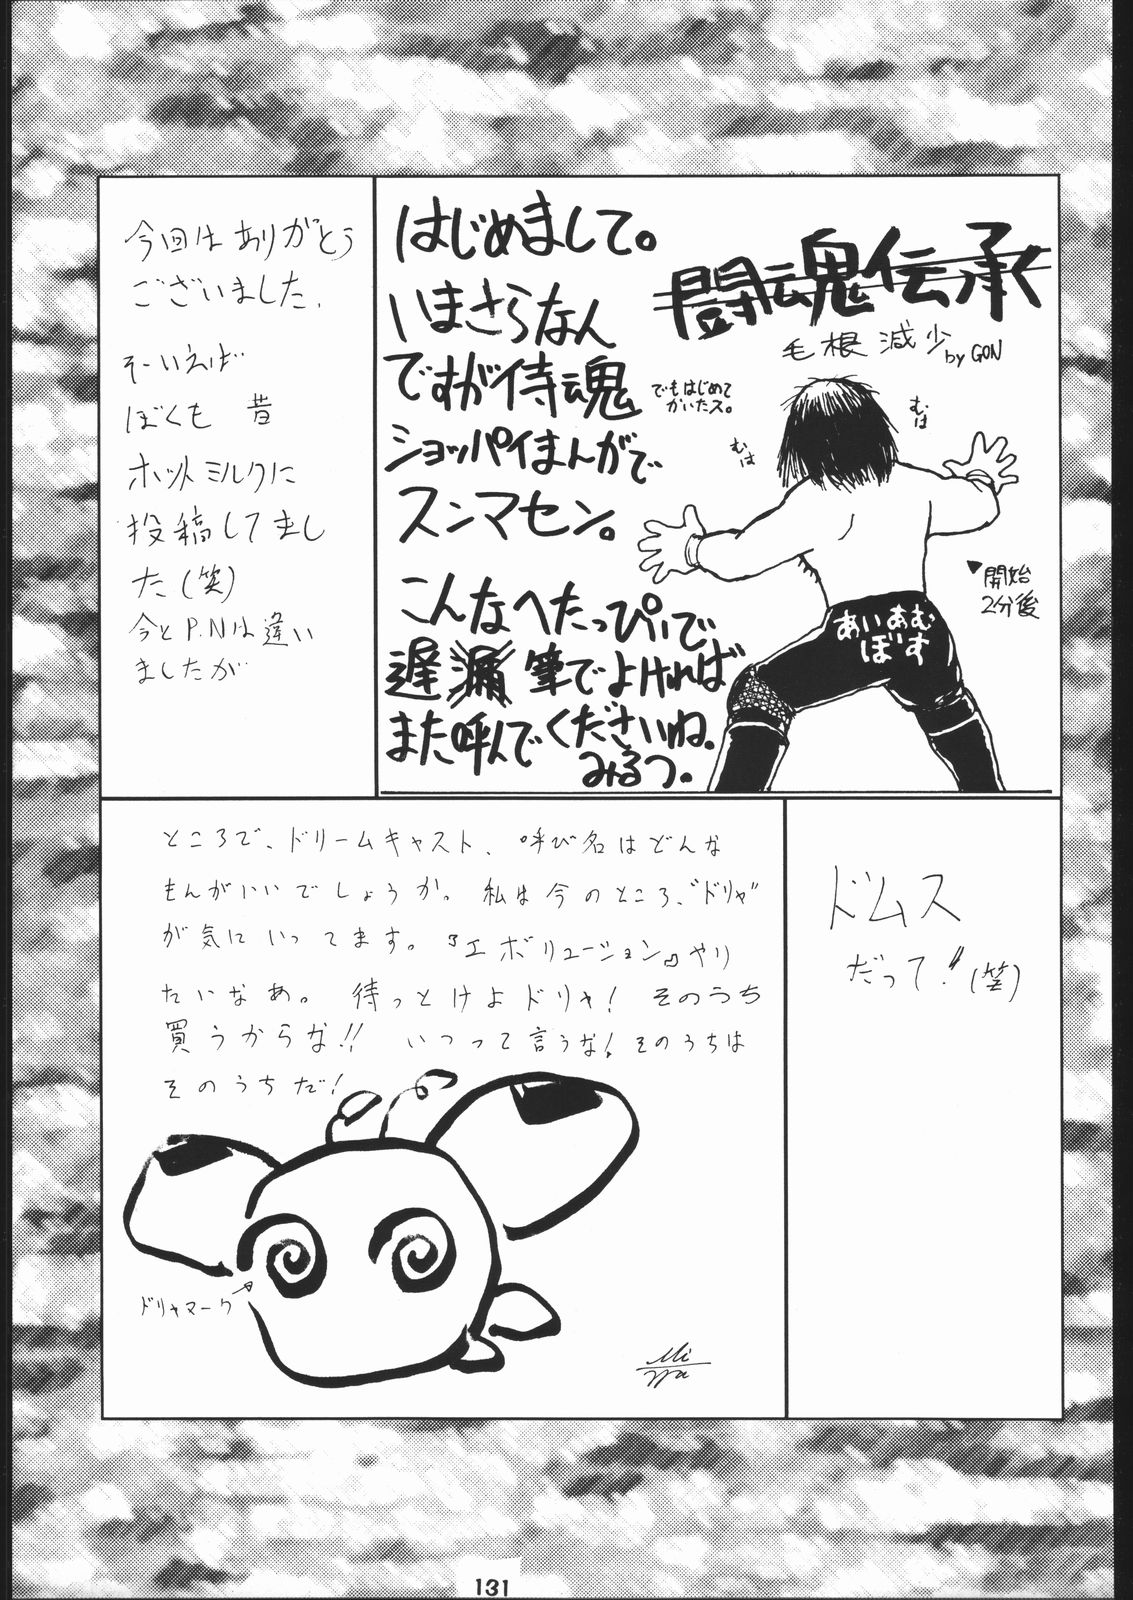 はじめまして。
いまさらなん
ですが侍魂
ショッパイまんがで
スンマセン。
こんなへたっぴいで
遅漏筆でよければ
また呼んでくださいね。
みるつ。
闘魂伝承
毛根減少 by GON
でもはじめて
かいたス。
むは
むは
▼開始
2分後
あいあむ
ぼす
今回はありがとう
ございました.
そーいえば
ぼくも 昔
ホットミルクに
投稿してまし
た(笑)
今とP.Nは違い
ましたが
ドムス
だって!!(笑)
ところで、ドリームキャスト、呼び名はどんな
もんがいいでしょうか。私は今のところ、"ドリャ"
が気にいってます。『エボリューション』やり
たいなあ。待っとけよドリャ!そのうち
買うからな!! いつって言うな!そのうちは
そのうちだ!
ドリャマーク
131